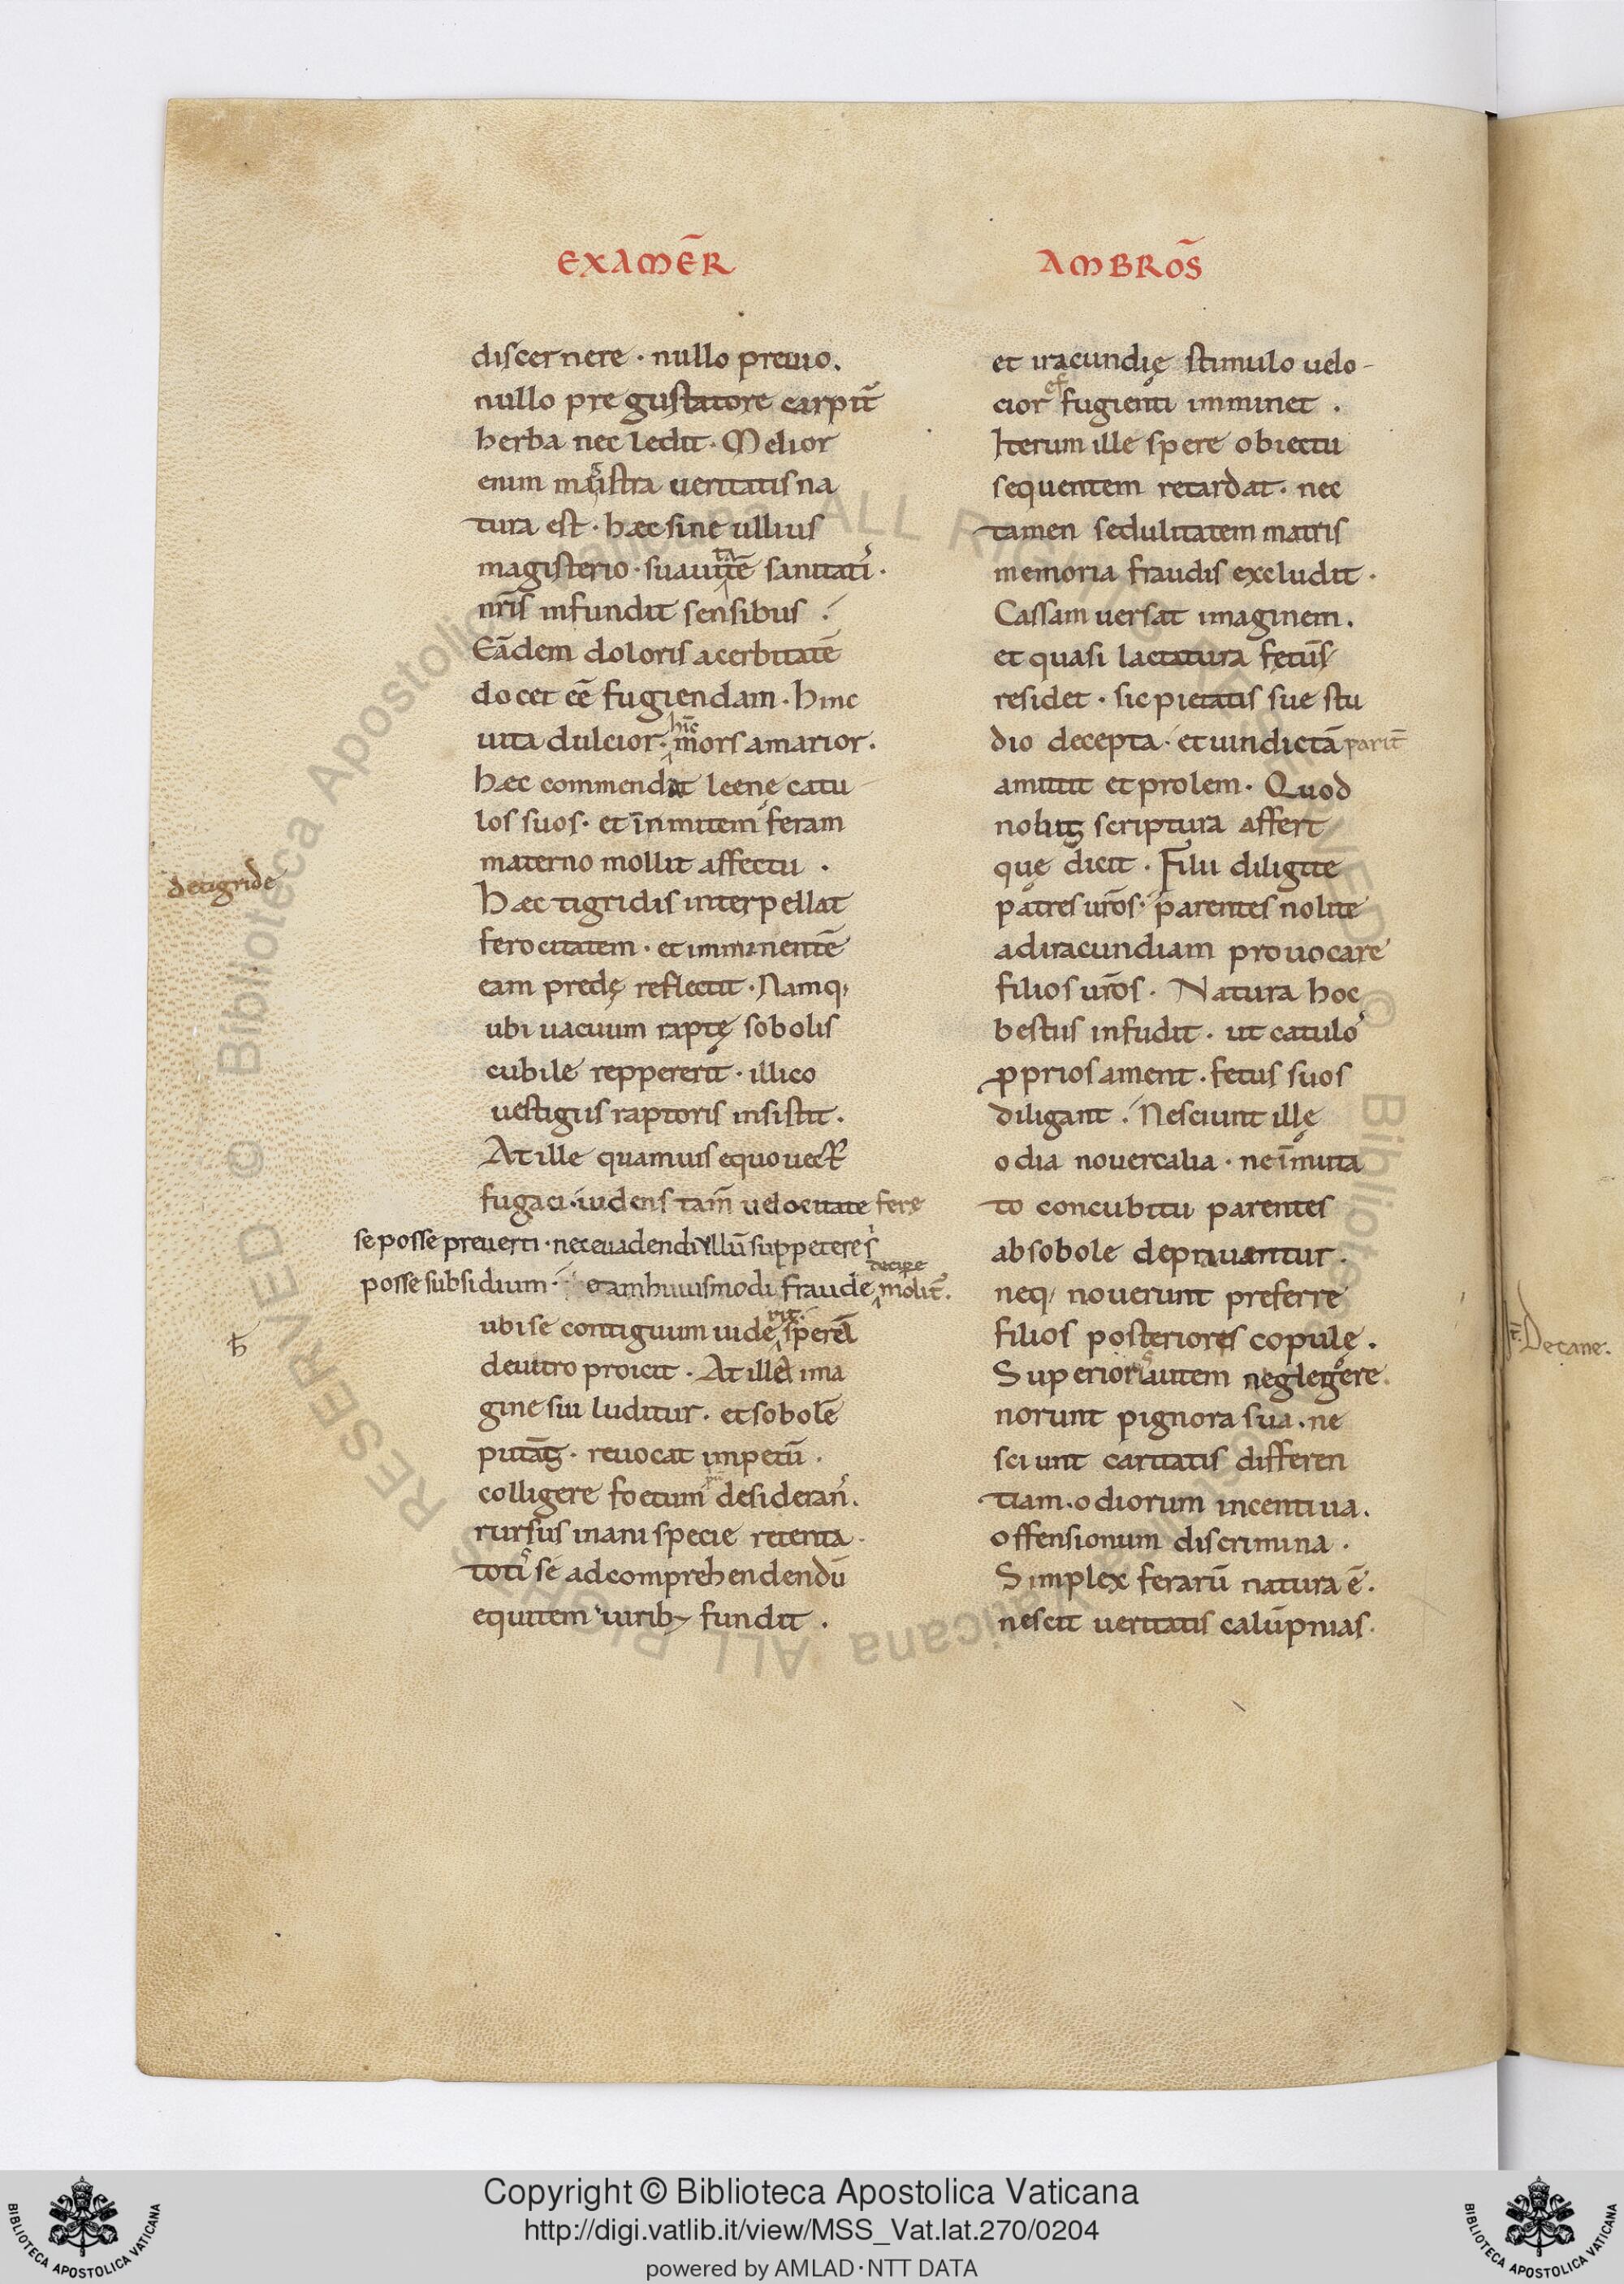 EXAMER̄
AMBROS̄
discernere · nullo preuio.
nullo pre gustatore carpit̄
herba nec ledit · Melior
enim magistra ueritatis na
tura est · hæc sine ullius
magisterio · suauitatē sanitati ·
nr̄is infundit sensibus ·
Eādem doloris acerbitatē
docet eē fugiendam · hinc
uita dulcior · hinc mors amarior ·
hæc commendat leenę catu
los suos · et īnmitem feram
materno mollit affectu ·
de tigride
hæc tigridis interpellat
ferocitatem · et imminentē
eam predę reflectit · Namq;
ubi uacuum raptę sobolis
cubile reppererit · illico
uestigiis raptoris insistit ·
At ille quamuis equo uect
fugaci · uidens tam̄ uelocitate ferę
se posse preuerti · nec euadendi ullū suppetere s
posse subsidium · huiusmodi fraude decipe molit̄ ·
ubi se contiguum uiderit sperā
de uitro proicit · At illa ima
gine sui luditur · et sobolē
putāt · reuocat impetū ·
colligere foetum desideran ·
rursus inani specie retenta ·
totis se ad comprehendendū
equitem uirib; fundit ·
et iracundię stimulo uelo-
cior fugienti imminet ·
Iterum ille spere obiectu
sequentem retardat · nec
tamen sedulitatem matris
memoria fraudis excludit ·
Cassam uersat imaginem ·
et quasi lactatura fetus
residet · sic pietatis sue stu
dio decepta · et uindictā parit̄
amittit et prolem · Quod
nobis scriptura affert
quę dicit · Filii diligite
patres ur̄os · parentes nolite
ad iracundiam prouocare
filios ur̄os · Natura hoc
bestiis infudit · ut catulo
ꝓprios ament · fetus suos
diligant · Nesciunt illę
odia nouercalia · ne īmuta
to concubitu parentes
ab sobole deprauantur ·
neq; nouerunt preferre
filios posteriores copulę ·
Superioris autem neglegere
norunt pignora sua · ne
sciunt caritatis differen
tiam · odiorum incentiua ·
offensionum discrimina ·
Simplex ferarū natura ē ·
nescit ueritatis calūpnias ·
De cane ·
Copyright © Biblioteca Apostolica Vaticana
http://digi.vatlib.it/view/MSS_Vat.lat.270/0204
powered by AMLAD·NTT DATA
BIBLIOTECA APOSTOLICA VATICANA
BIBLIOTECA APOSTOLICA VATICANA